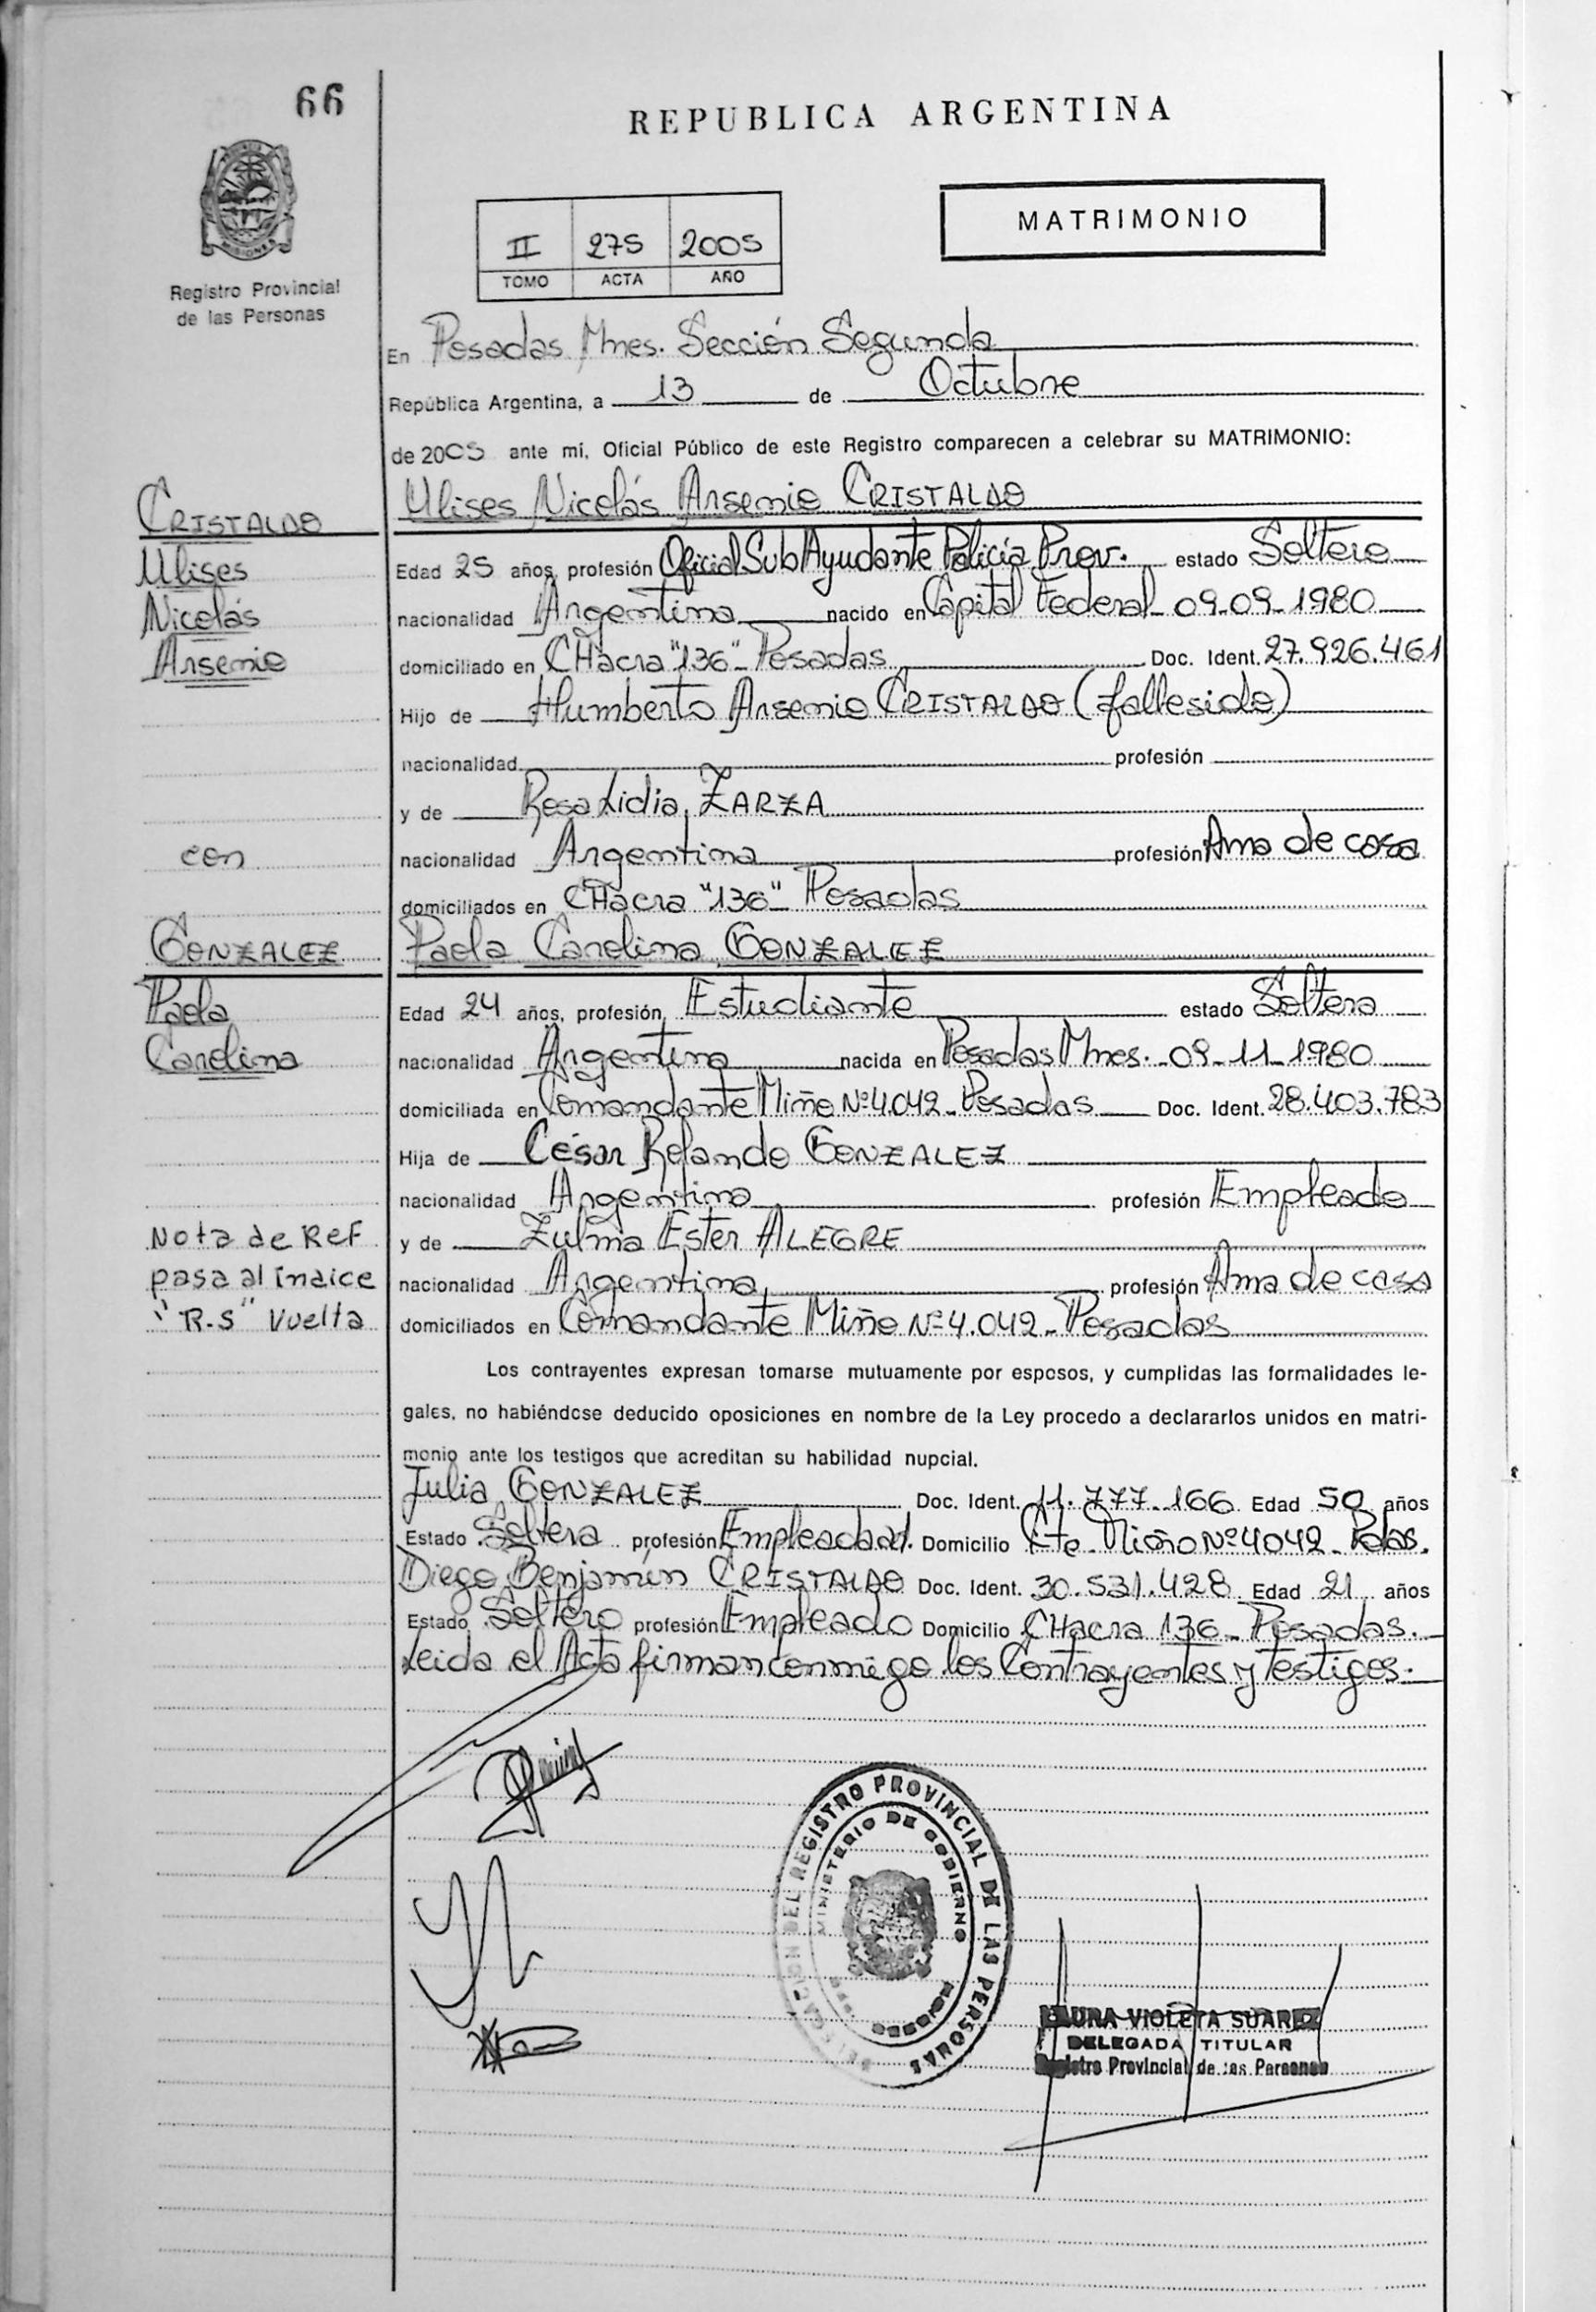 66
REPUBLICA ARGENTINA
MISIONES
Registro Provincial
de las Personas
II 275 2005
TOMO ACTA AÑO
MATRIMONIO
En Posadas Mnes. Sección Segunda
República Argentina, a 13 de Octubre
de 2005 ante mi, Oficial Público de este Registro comparecen a celebrar su MATRIMONIO:
CRISTALDO
Ulises Nicolás Arsenio CRISTALDO
Ulises
Edad 25 años, profesión Oficial Sub Ayudante Policía Prov. estado Soltero
Nicolás
nacionalidad Argentina nacido en Capital Federal 09-09-1980
Arsenio
domiciliado en CHacra "136" Posadas Doc. Ident. 27.926.461
Hijo de Humberto Arsenio CRISTALDO (fallesido)
nacionalidad profesión
y de Rosa Lidia ZARZA
con
nacionalidad Argentina profesión Ama de casa
domiciliados en CHacra "136" Posadas
GONZALEZ
Paola Carolina GONZALEZ
Paola
Edad 24 años, profesión Estudiante estado Soltera
Carolina
nacionalidad Argentina nacida en Posadas Mnes. 09-11-1980
domiciliada en Comandante Miño Nº 4.042 - Posadas Doc. Ident. 28.403.783
Hija de César Rolando GONZALEZ
nacionalidad Argentina profesión Empleado
Nota de Ref
y de Zulma Ester ALEGRE
pasa al índice
nacionalidad Argentina profesión Ama de casa
"R-S" Vuelta
domiciliados en Comandante Miño Nº 4.042 - Posadas
Los contrayentes expresan tomarse mutuamente por esposos, y cumplidas las formalidades le-
gales, no habiéndose deducido oposiciones en nombre de la Ley procedo a declararlos unidos en matri-
monio ante los testigos que acreditan su habilidad nupcial.
Julia GONZALEZ Doc. Ident. 11.777.166 Edad 50 años
Estado Soltera profesión Domicilio Cte. Miño Nº 4042 - Pdas.
Diego Benjamín CRISTALDO Doc. Ident. 30.531.428 Edad 21 años
Estado Soltero profesión Empleado Domicilio CHacra 136 - Posadas.
Leida el Acta firman conmigo los Contrayentes y testigos.
DELEGACION DEL REGISTRO PROVINCIAL DE LAS PERSONAS
MINISTERIO DE GOBIERNO
LAURA VIOLETA SUAREZ
DELEGADA TITULAR
Registro Provincial de las Personas